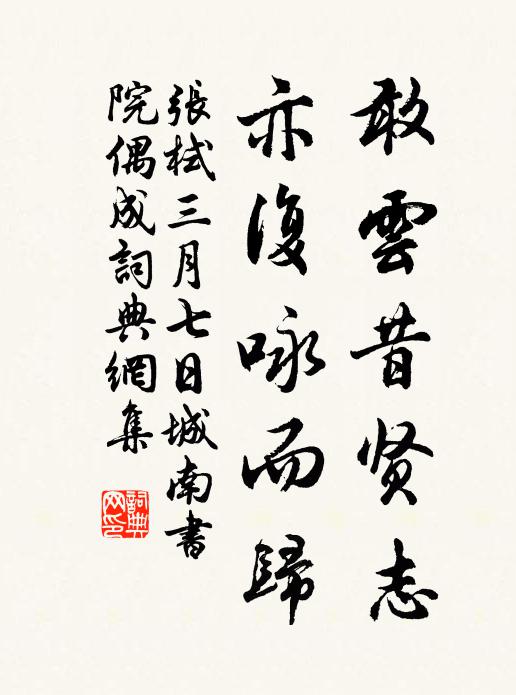 敢雲昔贤志
亦復咏而歸
張栻三月七日城南書
院偶成詞典網集
詞典
网印